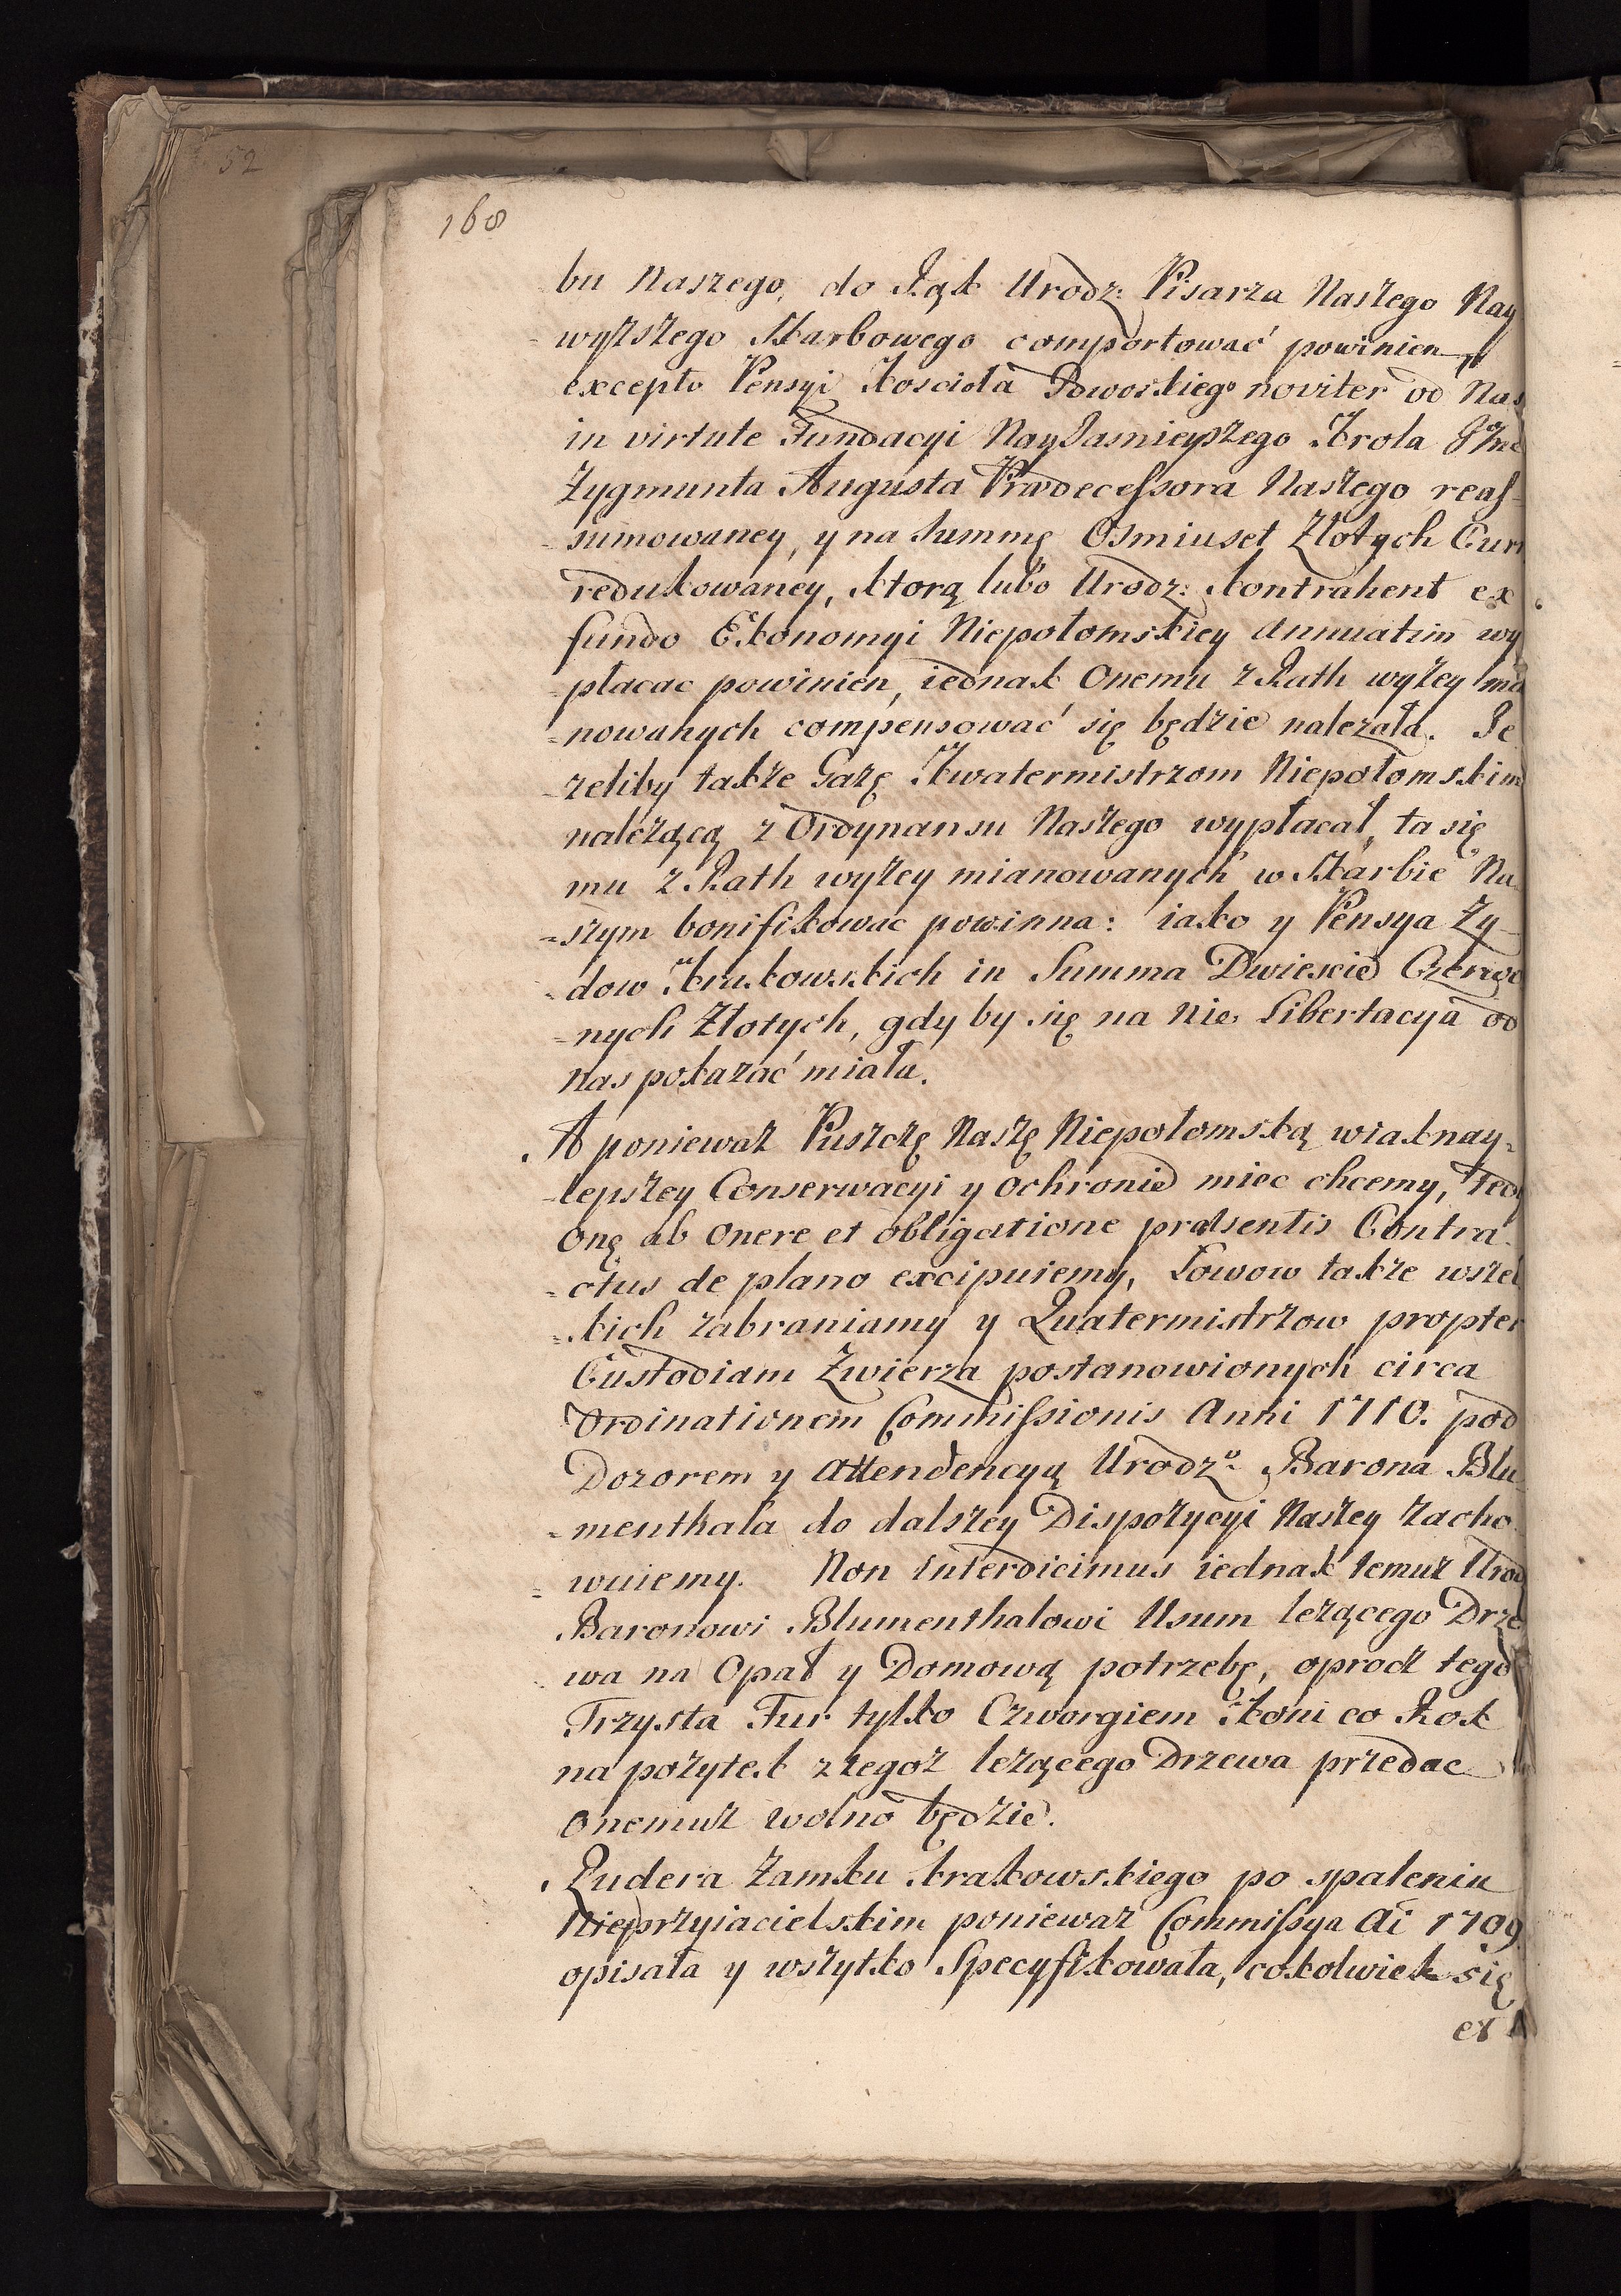 52
168
bu Naszego, do Rąk Urodz: Pisarza Naszego Nay
-wyższego Skarbowego comportować powinien
excepto Pensyi Koscioła noviter od Nas
in virtute Fundacyi NayJasnieyszego Krola
Zygmunta Augusta Prædecessora Naszego reas-
-sumowaney, y na Summę Osmiuset Złotych Curr
redukowaney, ktorą lubo Urodz: Kontrahent ex
fundo Ekonomyi Niepołomskiey Annuatim wy
-płacac powinien, iednak Onemu z Rath wyżey mia
-nowanych compensować się będzie nalezała. Je
-zeliby także Gażę Kwatermistrzom Niepołomskim
należącą z Ordynansu Naszego wypłacał, ta się
mu z Rath wyżey mianowanych w Skarbie Na
-szym bonifikowac powinna: iako y Pensya Ży-
-dow Krakowskich in Summa Dwiescie Czerwo
-nych Złotych, gdy by się na Nie Libertacya od
Nas pokazać miała.
A ponieważ Puszczę Naszę Niepołomską w iaknay-
-lepszey Conserwacyi y Ochronie miec chcemy, tedy
Onę ab Onere et obligatione præsentis Contra-
-ctus de plano excipuiemy, Łowow także wszel
-kich zabraniamy y Quatermistrzow propter
Custodiam Zwierza postanowionych circa
Ordinationem Commissionis Anni 1710. pod
Dozorem y Attendencyą Urodzo: Barona Blu
-menthala do dalszey Dispozycyi Naszey zacho
-wuiemy. Non interdicimus iednak temuż Urodz
Baronowi Blumenthalowi Usum leżącego Drze
wa na Opał y Domową potrzebę, oprocz tego
Trzysta Fur tylko Czworgiem Koni co Rok
na pożytek z tegoż leżącego Drzewa przedac
Onemuż wolno będzie.
Rudera Zamku Krakowskiego po spaleniu
Nieprzyiacielskim ponieważ Commissya Ai 1709
opisała y wszytko Specyfikowała, cokolwiek się
ex